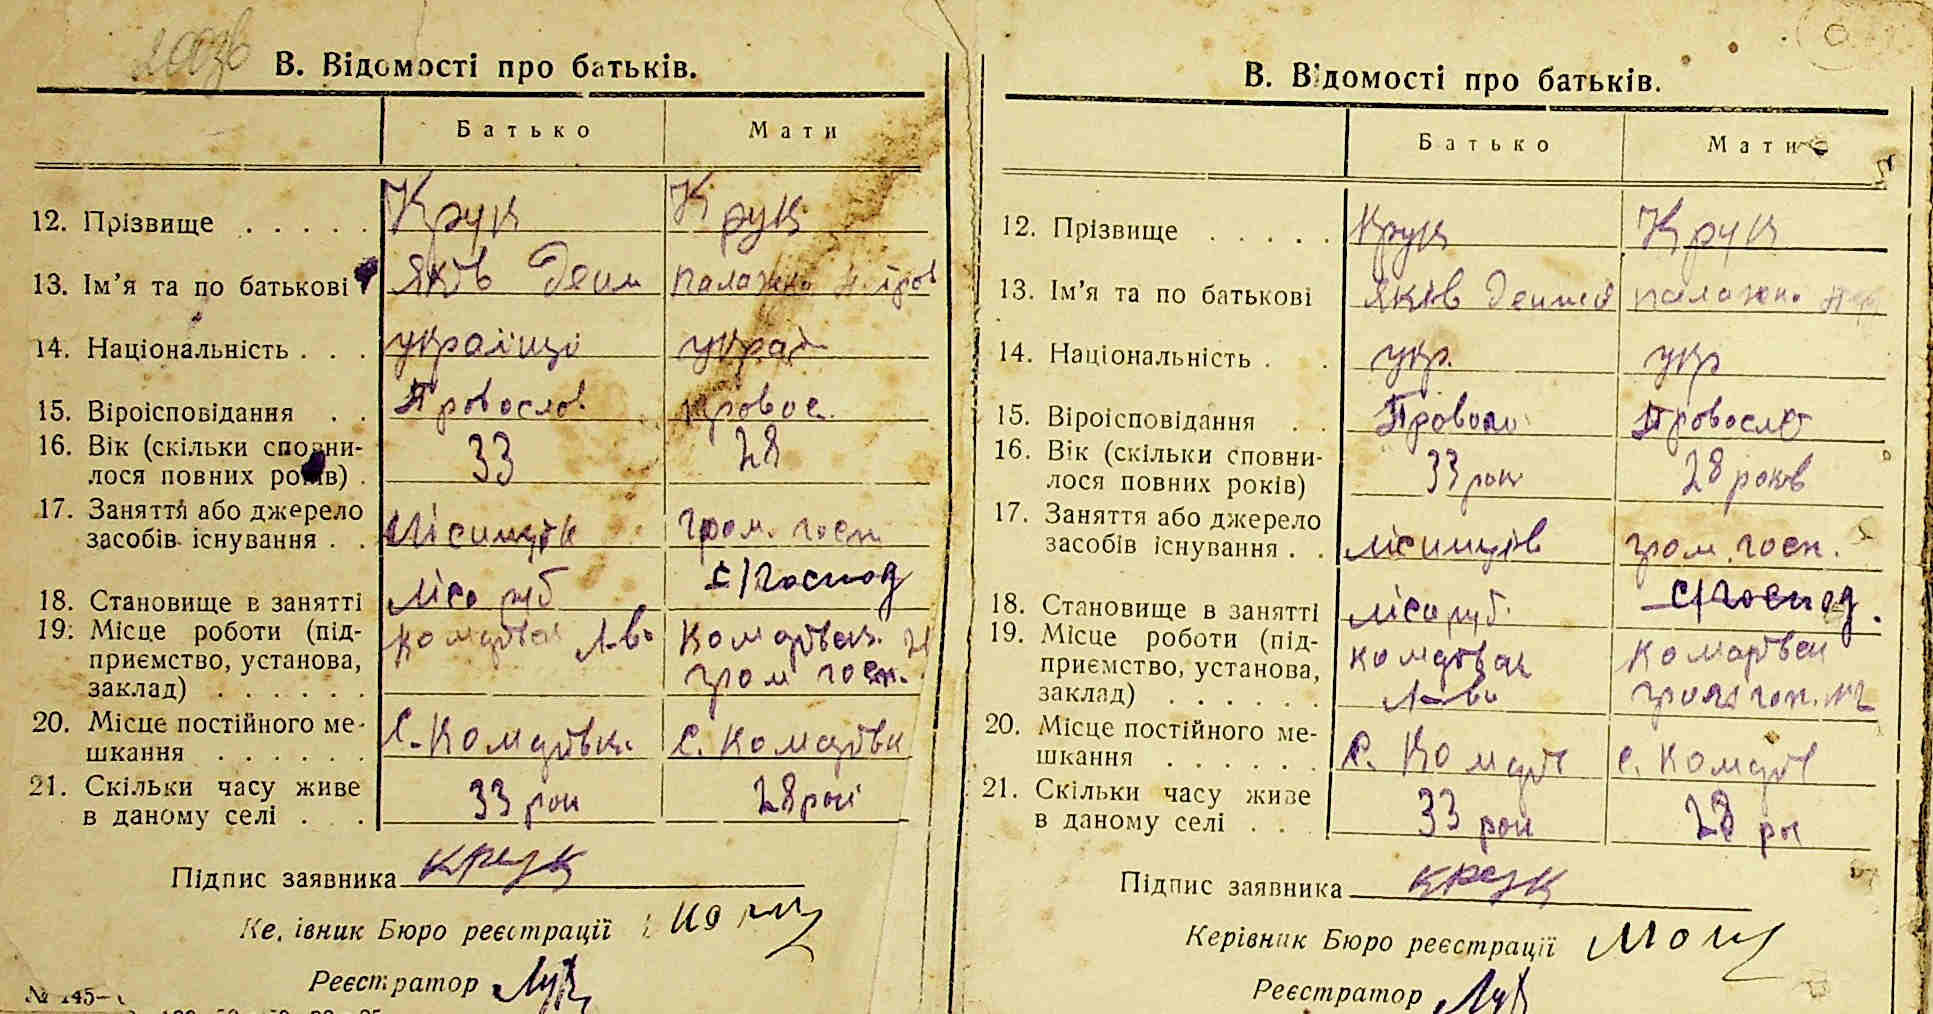 В. Відомості про батьків.
Батько Мати
12. Прізвище . . . . . Крук Крук
13. Ім'я та по батькові Яків Деим Палажка
14. Національність . . . українці украї
15. Віроісповідання . . Провослов провос.
16. Вік (скільки сповни-
лося повних років) . 33 28
17. Заняття або джерело
засобів існування . . гром. госп
18. Становище в занятті лісоруб с/господ
19. Місце роботи (під-
приємство, установа,
заклад) . . . . . . гром госп.
20. Місце постійного ме-
шкання . . . . . . С. Комарівка С. Комарівка
21. Скільки часу живе
в даному селі . . . 33 рок 28 рок
Підпис заявника Крук
Керівник Бюро реєстрації
Реєстратор
№ 145–
В. Відомості про батьків.
Батько Мати
12. Прізвище . . . . . Крук Крук
13. Ім'я та по батькові Яків
14. Національність . . укр. укр
15. Віроісповідання . . Провосл Провослов
16. Вік (скільки сповни-
лося повних років) 33 рок 28 років
17. Заняття або джерело
засобів існування . . гром. госп.
18. Становище в занятті лісоруб. с/господ.
19. Місце роботи (під-
приємство, установа,
заклад) . . . . . .
20. Місце постійного ме-
шкання . . . . . . С. Комарів С. Комарів
21. Скільки часу живе
в даному селі . . . 33 рок 28 рок
Підпис заявника Крук
Керівник Бюро реєстрації
Реєстратор